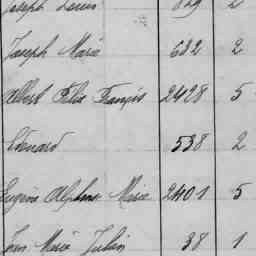 Joseph Louis 829 2
Joseph Marie 682 2
Albert Félix François 2428 5
Edouard 538 2
Eugène Alphonse Marie 2401 5
Jean Marie Julien 38 1